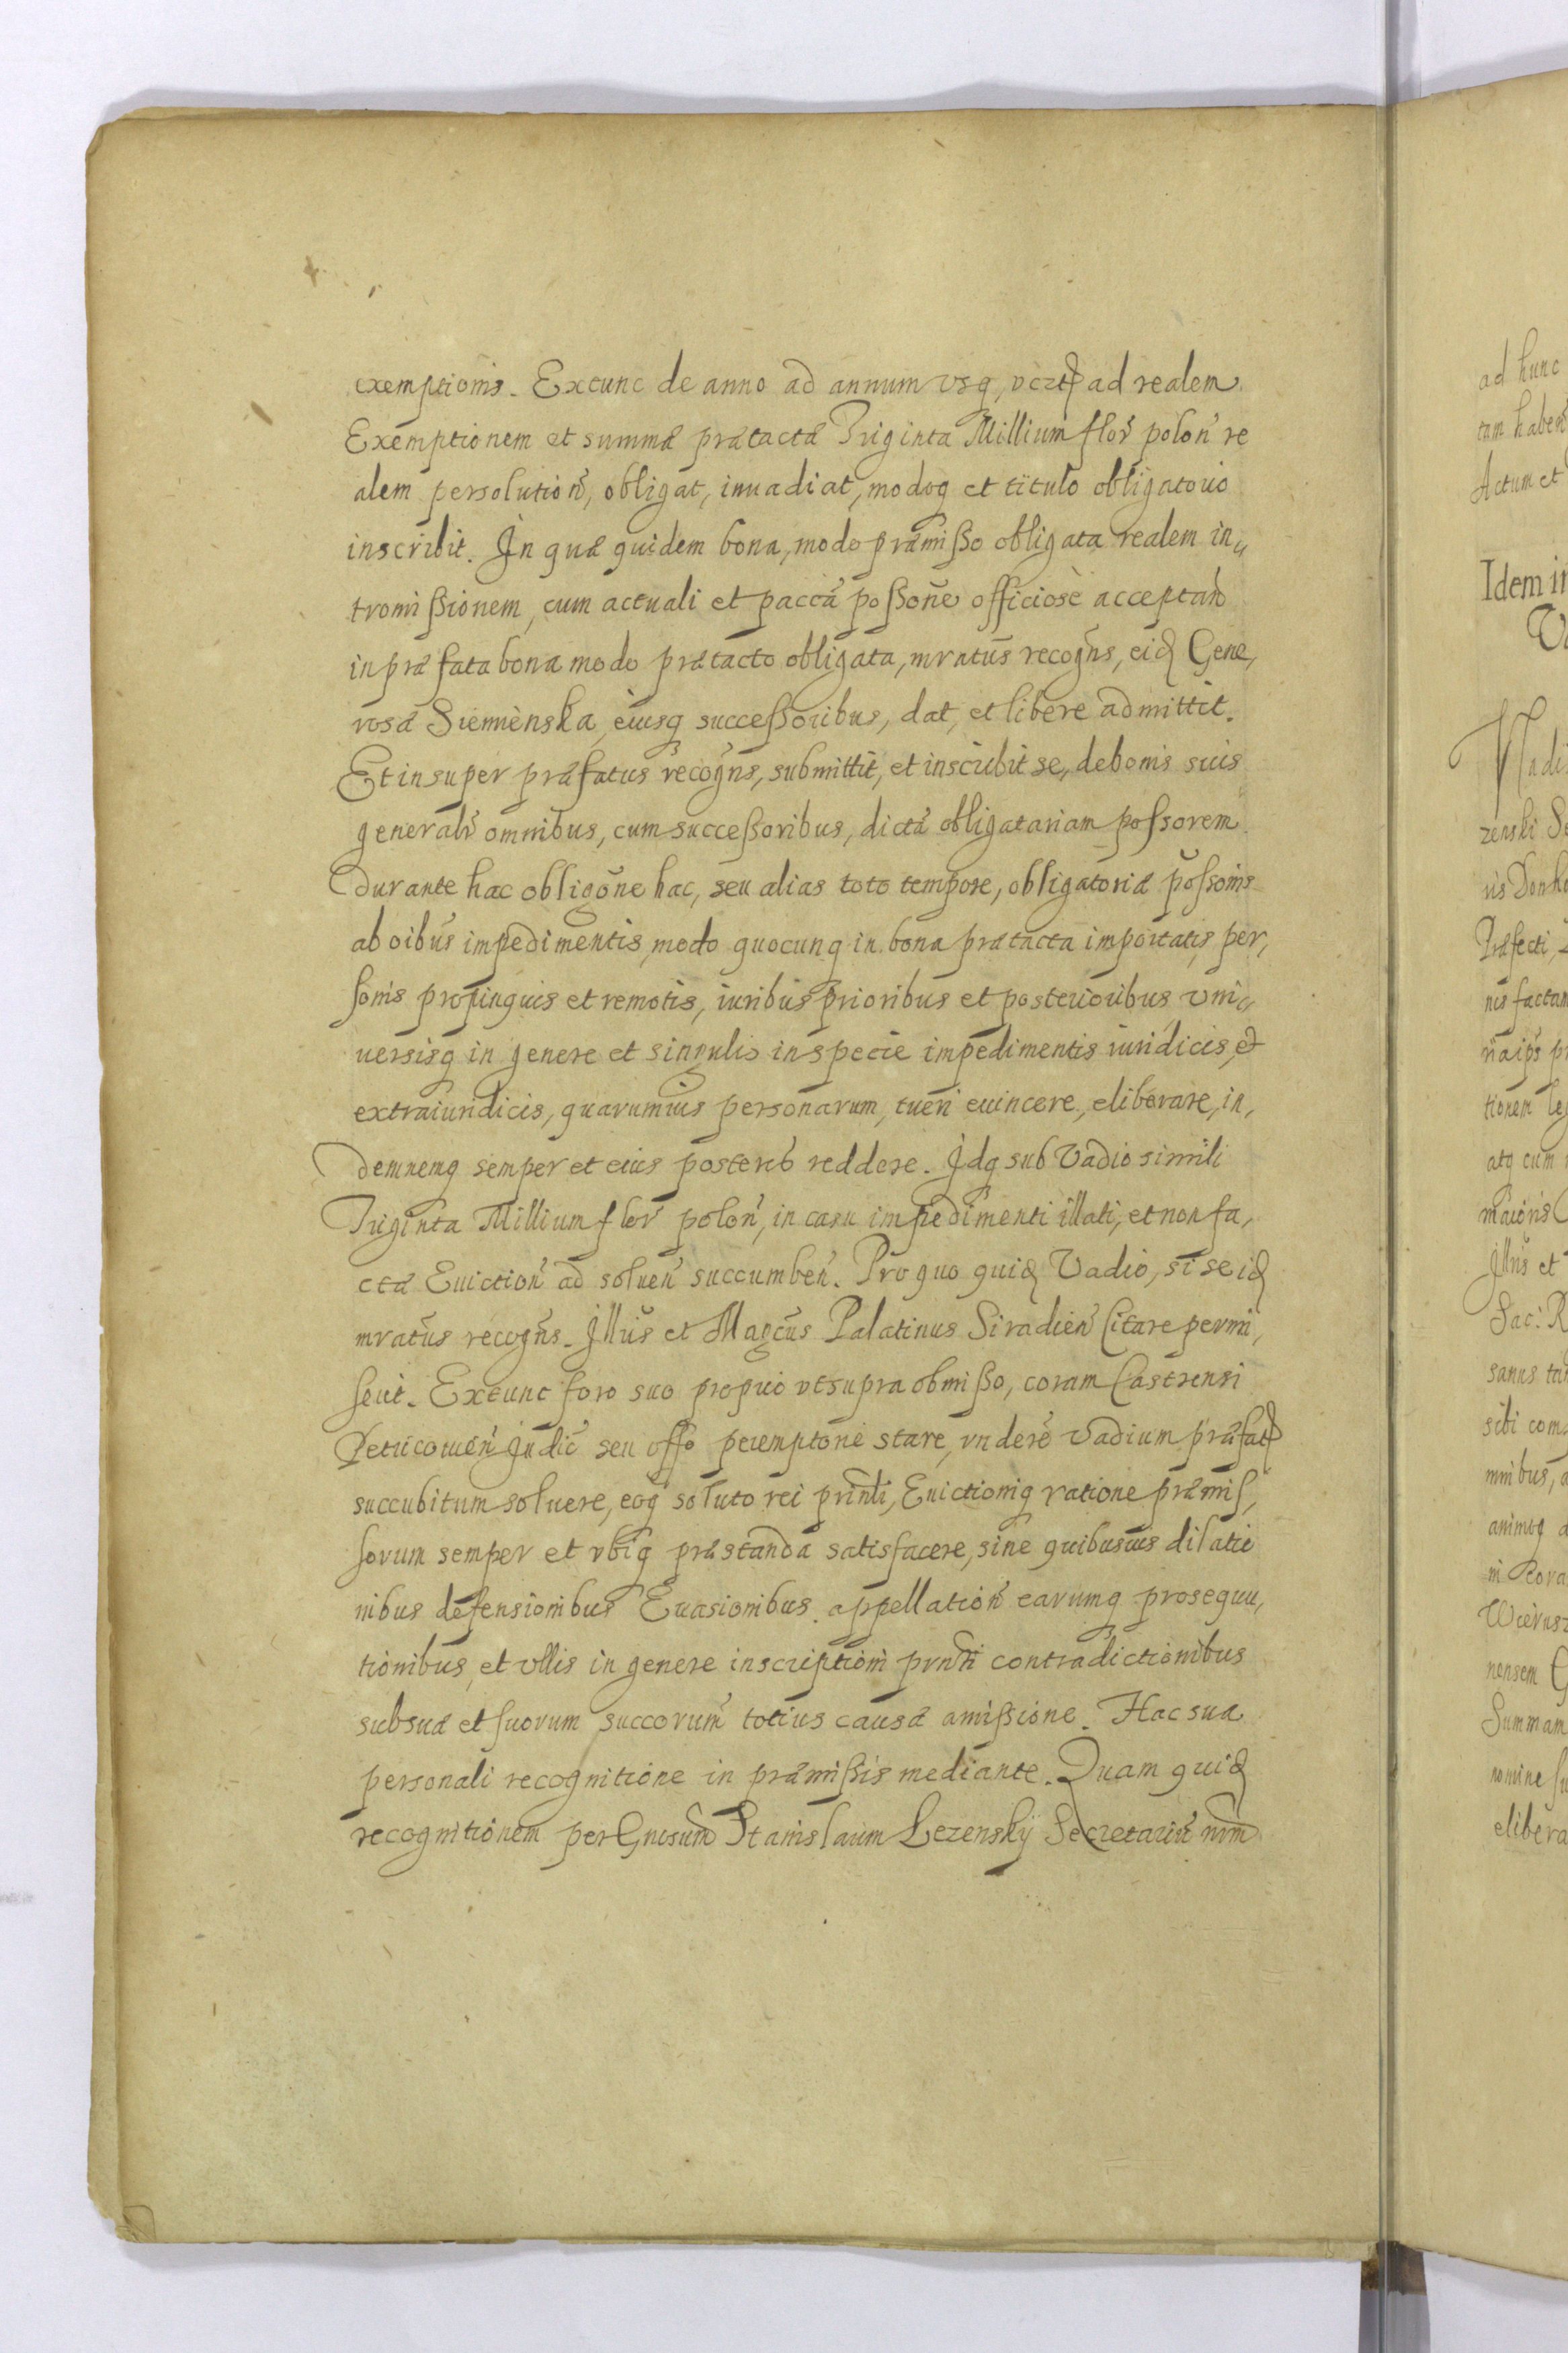 exemptionis. Extunc de anno ad annum vsq, ad realem
Exemptionem et summæ prætactæ Triginta Millium flor̃ polon̄ re
alem persolution̄, obligat, inuadiat, modoq et titulo obligatorio
inscribit. In quæ quidem bona, modo præmißo obligata realem in„
tromißionem, cum actuali et pacca poßone officiosè acceptan̄
in præfata bona modo prætacto obligata, mratus recogns, eid Gene,
rosæ Siemienska, eiusq succeßoribus, dat, et libere admittit.
Et insuper præfatus recogns, submittit, et inscribit se, de bonis suis
generalr̄ omnibus, cum succeßoribus, dictã obligatariam poßorem
durante hac obligone hac, seu alias toto tempore, obligatoriæ poßonis
ab oibus impedimentis, modo quocunq in bona prætacta importatis, per,
sonis propinquis et remotis, iuribus prioribus et posterioribus vni„
uersisq in genere et singulis in specie impedimentis iuridicis, et
extraiuridicis, quarumuis personarum, tueri euincere, eliberare, in,
demnemq semper et eius posteros reddere. Idq sub Vadio simili
Triginta Millium flor̃ polon̄, in casu impedimenti illati, et non fa,
ctæ Euiction̄ ad soluen̄ succumben̄. Pro quo quid Vadio, si se id
mratus recogns. Illus et Magcus Palatinus Siradien̄ Citare permi,
serit. Extunc foro suo proprio vt supra obmißo, coram Castrensi
Petricouien̄ Iudic̄ seu offo peremptone stare, vndere Vadium præfat
succubitum soluere, eoq soluto rei prinli, Euictioniq ratione præmis,
sorum semper et vbiq præstanda satisfacere, sine quibusuis dilatio
nibus defensionibus Euasionibus appellation̄ earumq prosequu,
tionibus, et vllis in genere inscriptioni prnti contradictionibus
sub sua et suorum succorum totius causæ amißione. Hac sua
personali recognitione in præmißis mediante. Quam quid
recognitionem per Gnosum Stanislaum Lezenskÿ Secretariũ nrm
ad hunc
tam haben̄
Actum et
Idem in
zenski
Præfecti,
nis factam
tionem
atq cum
maioris
Illris et
Sac: R
sanus
sibi
mnibus,
animoq
nensem
Summam
nomine
elibera